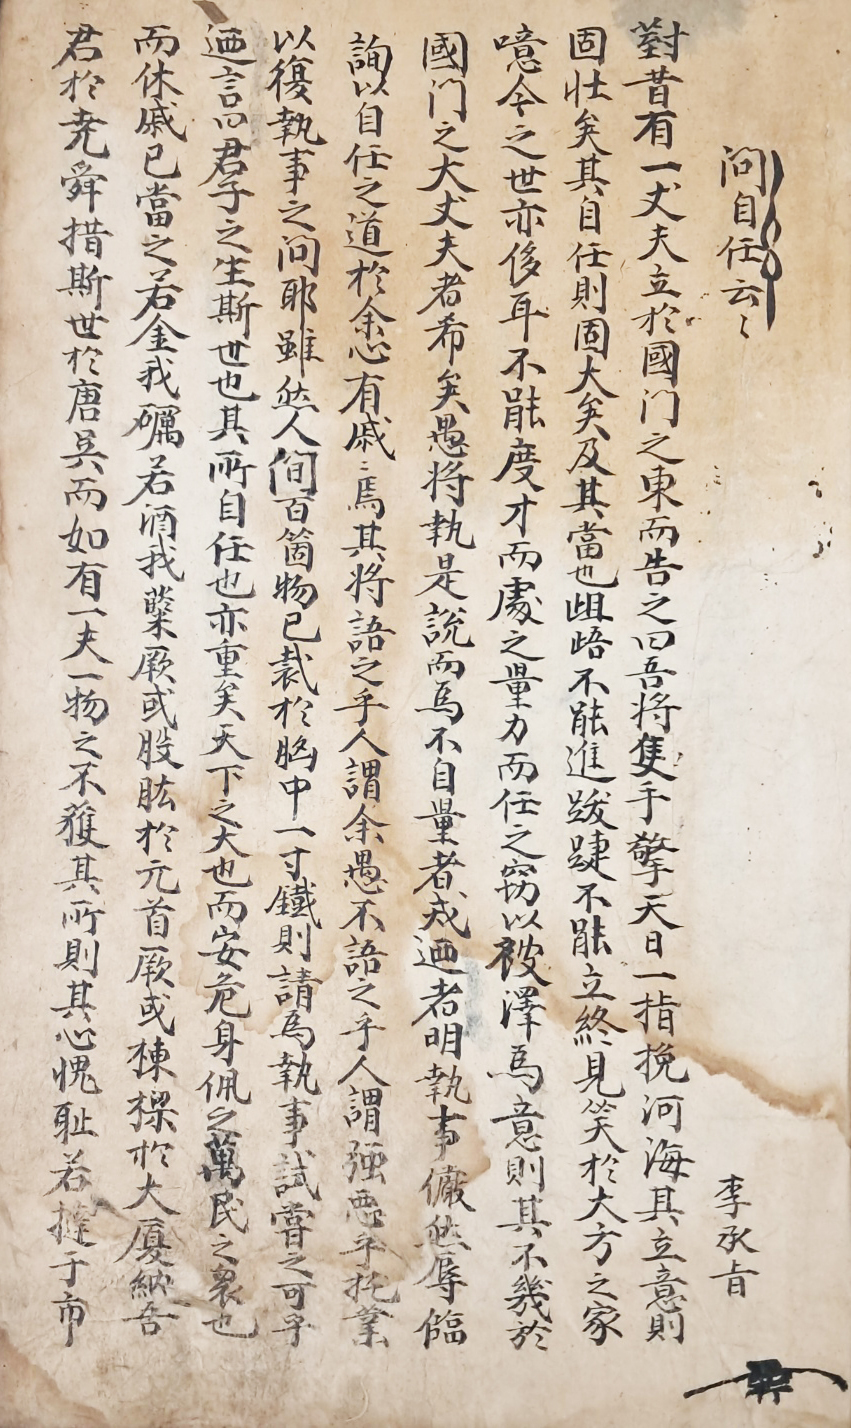 問自任云〻 李承旨
對昔有一丈夫立於國门之東而告之曰吾將隻手擎天日一指挽河海其立意則
固壯矣其自任則固大矣及其當也齟齬不能進跋踕不能立終見笑於大方之家
噫今之世亦侈耳不能度才而處之量力而任之竊以被澤爲意則其不幾於
國门之大丈夫者希矣愚將執是說而爲不自量者戒迺者明執事儼然辱臨
詢以自任之道於余心有戚〻焉其將語之乎人謂余愚不語之乎人謂强悪乎托業
以復執事之问耶雖然人间百箇物已裁於胸中一寸鐵則請爲執事試嘗之可乎
迺言曰君子之生斯世也其所自任也亦重矣天下之大也而安危身佩之萬民之衆也
而休戚已當之若金我礪若酒我蘖厥或股肱於元首厥或棟樑於大厦納吾
君於尭舜措斯世於唐吳而如有一夫一物之不獲其所則其心愧耻若撻于市